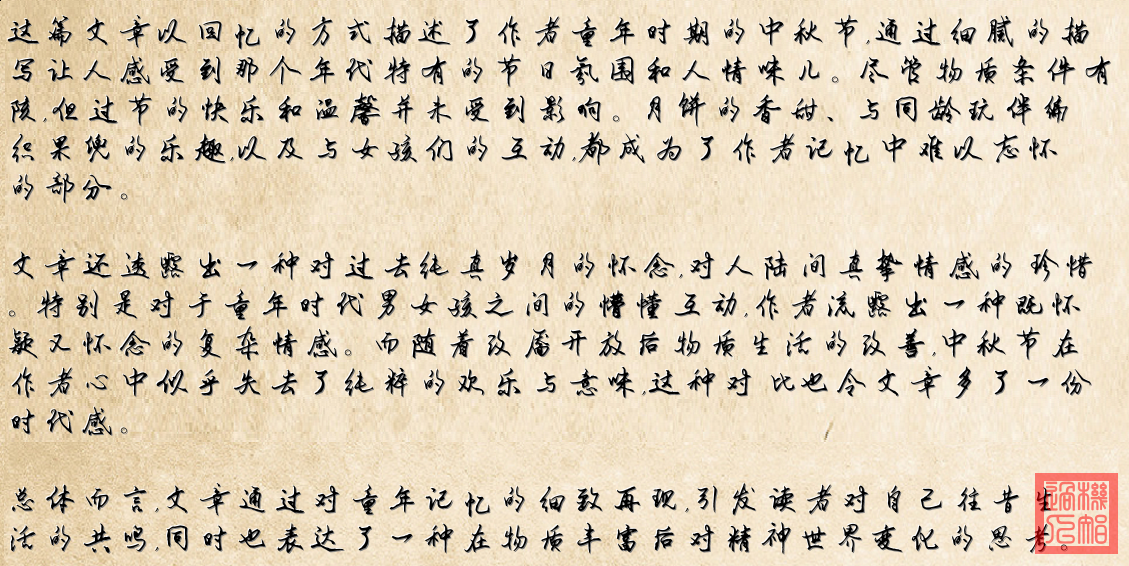 这篇文章以回忆的方式描述了作者童年时期的中秋节,通过细腻的描
写让人感受到那个年代特有的节日氛围和人情味儿。尽管物质条件有
限,但过节的快乐和温馨并未受到影响。月饼的香甜、与同龄玩伴编
织果兜的乐趣,以及与女孩们的互动,都成为了作者记忆中难以忘怀
的部分。
文章还透露出一种对过去纯真岁月的怀念,对人际间真挚情感的珍惜
。特别是对于童年时代男女孩之间的懵懂互动,作者流露出一种既怀
疑又怀念的复杂情感。而随着改革开放后物质生活的改善,中秋节在
作者心中似乎失去了纯粹的欢乐与意味,这种对比也令文章多了一份
时代感。
总体而言,文章通过对童年记忆的细致再现,引发读者对自己往昔生
活的共鸣,同时也表达了一种在物质丰富后对精神世界变化的思考。